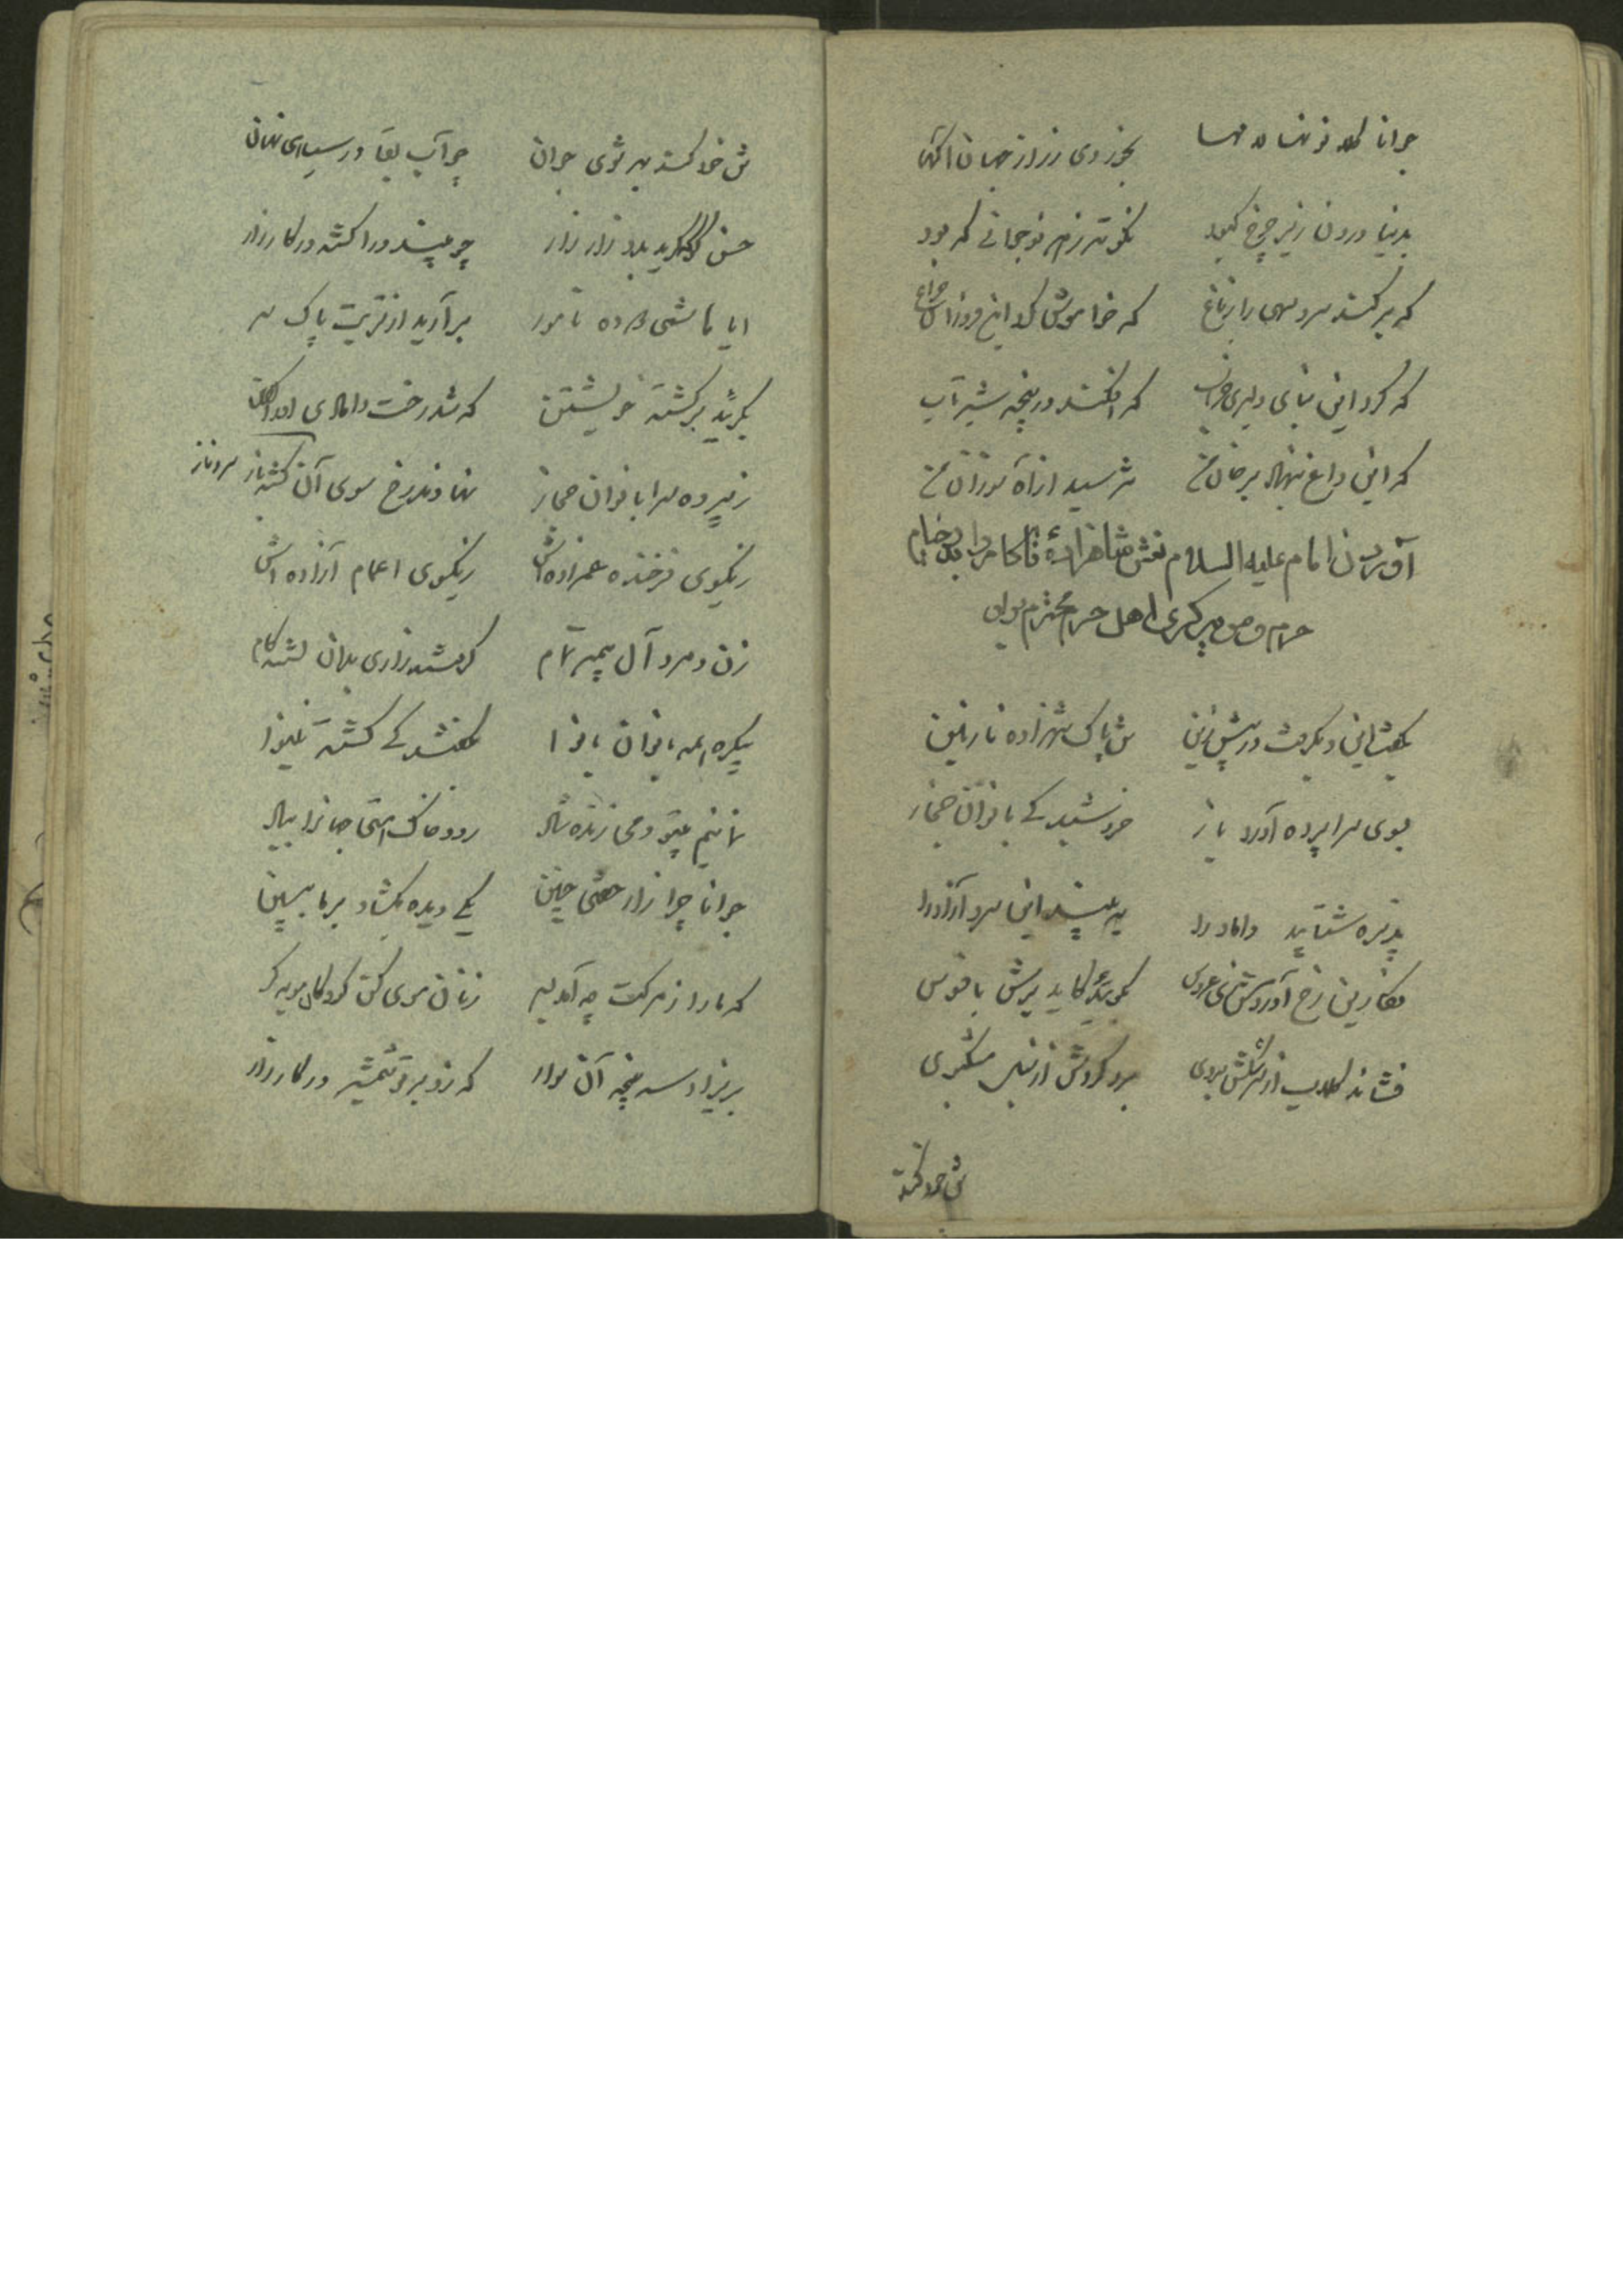 جوانا
بخوردی ز راز جهان آگهی
بدنیا درون زیر چرخ کبود نکوتر ز هر نوجوانی که بود
که برکند سرو سهی را ز باغ که خاموش کرد این فروزان چراغ
که کرد این بنای دلیری خراب که افکند در پنجه شیر آب
که این داغ بنهاد بر جان من نترسید از آه سوزان من
آوردن امام علیه السلام نعش شاهزاده ناکام را بدر خیام
حرم و مویه گری اهل حرم محترم بران
بگفت این و بگرفت در پیش زین تن پاک شهزاده نازنین
بسوی سراپرده آورد باز خروشید کی بانوان حجاز
پذیره شتابید داماد را ببینید این سرو آزاد را
نگارین رخ آورد سوی عروس بگوئید کاید برش با فسوس
فشاند گلاب از سرشکش بروی برد گردش از تن بمشکین موی
تن خود کشته
تن خود کشته بهر شوی جوان چو آب بقا در سیاهی نهان
حسن گو بگرید بدو زار زار چو بیند ورا کشته در کارزار
ایا هاشمی دوده نامور برآرید از تربت پاک سر
بگریید بر کشته خویشتن که شد رخت دامادی او را کفن
ز پرده سرا بانوان حجاز نهادند رخ سوی آن کشته باز سرو ناز
ز یکسوی فرخنده عمزاده اش ز یکسوی اعمام آزاده اش
زن و مرد آل پیمبر تمام گرفتند زاری بدان تشنه کام
یکی مه بانوان بانوا بگفتند کی کشته نینوا
نمانیم بیتو دمی زنده شاد رود خاک با بی تو جانها بباد
جوانا چرا زار خفتی چنین یکی دیده بگشاد بر ما ببین
که ما را ز مرگت چه آمد بسر زنان موی کن کودکان مویه گر
بریزاد سر پنجه آن سوار که زد بر تو شمشیر در کارزار